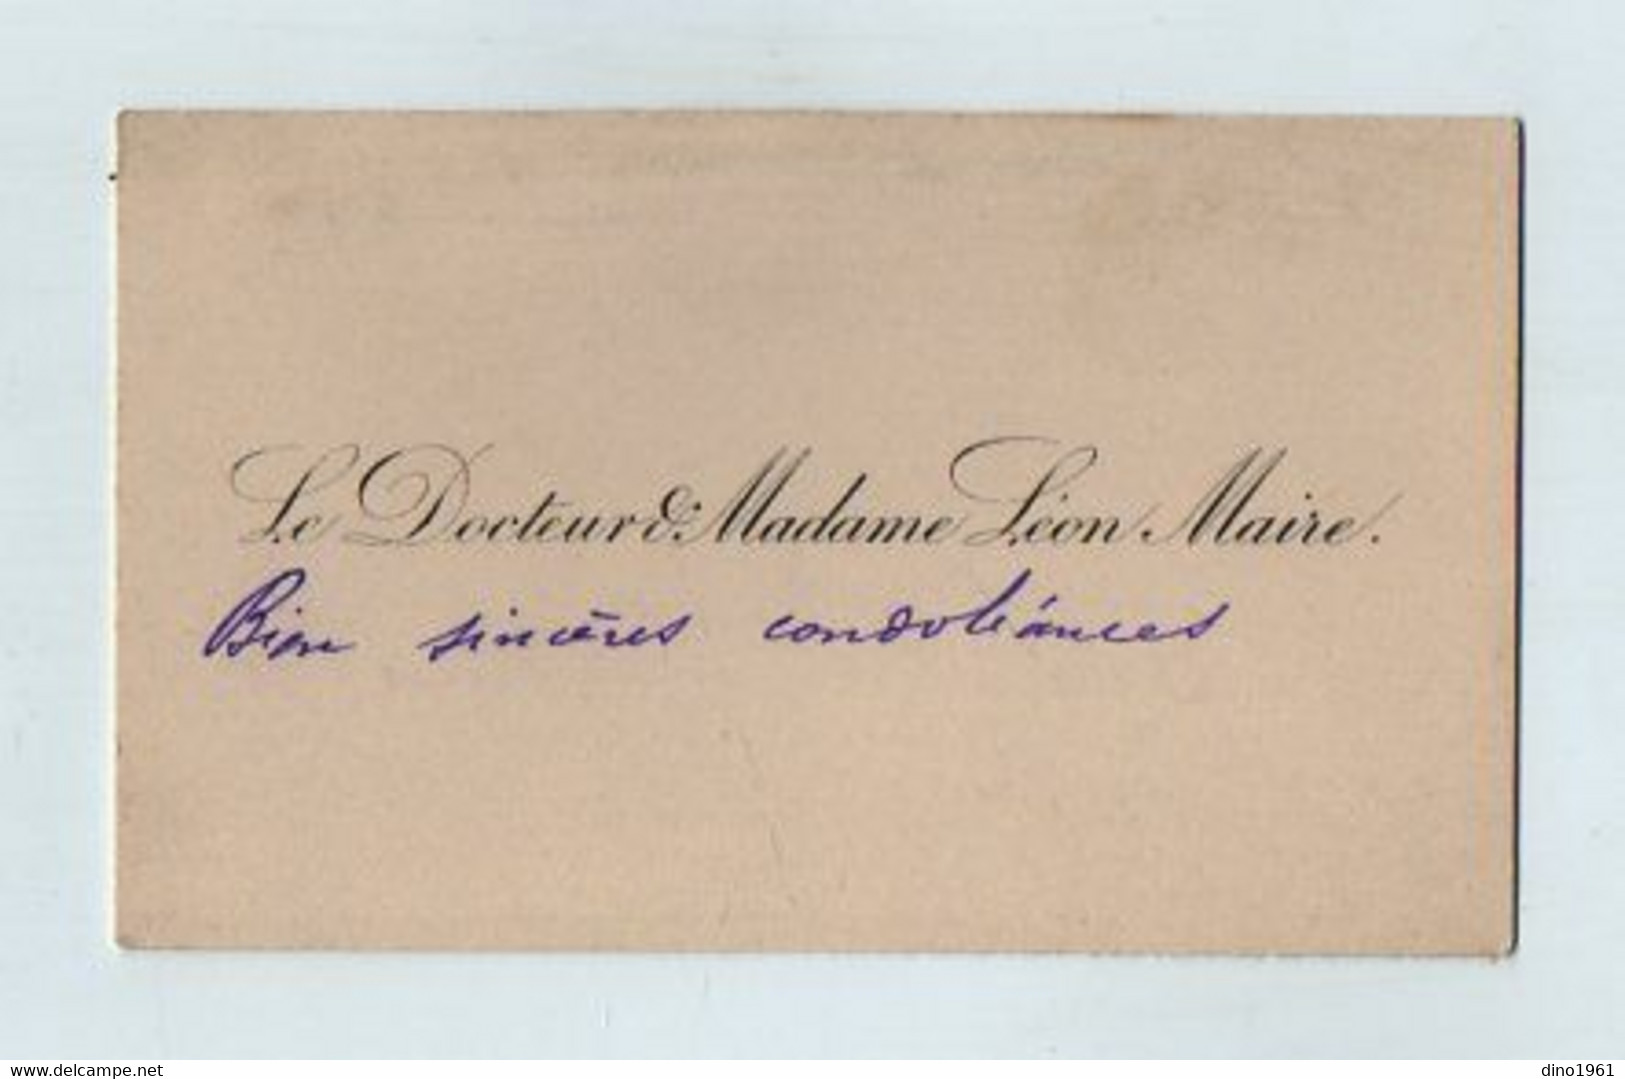 Le Docteur & Madame Léon Maire.
Bien sincères condoléances
www.delcampe.net
dino1961